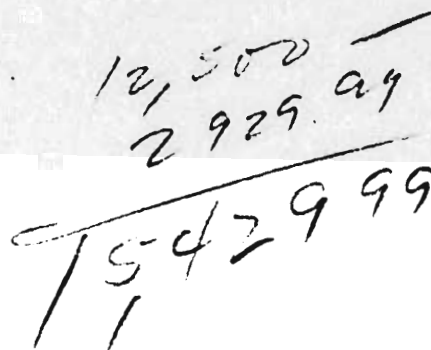 12,500 —
2929.99
1542999
1